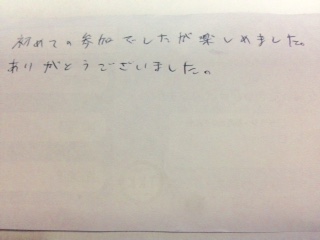 初めての参加でしたが楽しめました。
ありがとうございました。